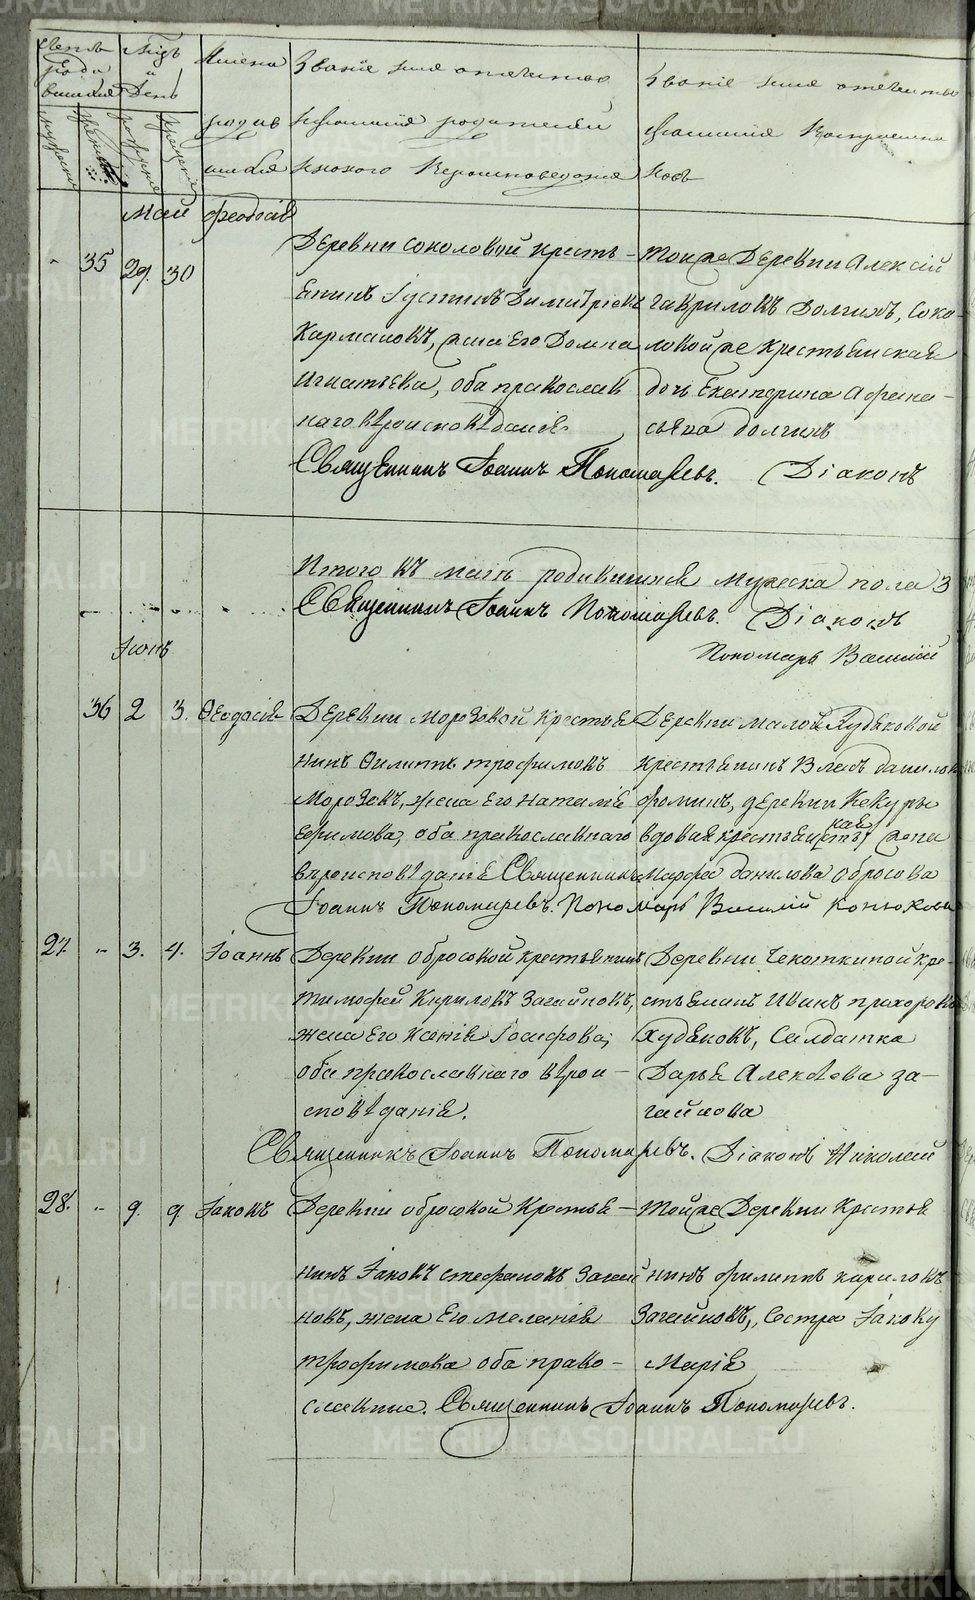 Счетъ родившихся
Мѣсяцъ и День
Имена родившихся
Званіе имя отчество и фамилія родителей и какого Вероисповеданія
Званіе имя отчество фамилія Воспріемниковъ
мужеска
женска
рожденія
крещенія
Май
- 35 29. 30 Феодосія
Деревни Соколовой крестьянинъ Іустинъ Димитріевъ
Кармановъ, жена его Домна
Игнатьева, оба православнаго вѣроисповѣданія
Тойже Деревни Алексій
Гавриловъ Долгихъ, Соколовой же крестьянская
дочь Екатерина Афанасьева Долгихъ
Священникъ Іоаннъ Пономаревъ. Діаконъ
Итого въ маіѣ родившихся мужеска пола 3
Священникъ Іоаннъ Пономаревъ. Діаконъ
Пономарь Василій
Іюнь
36 2 3. Ѳеодосія
Деревни Морозовой крестьянинъ Филиппъ Трофимовъ
Морозовъ, жена его Наталія
Ефимова, оба православнаго
вѣроисповѣданія
Деревни Малой Худяковой
крестьянинъ Владъ Данилов
Фоминъ, деревни Кекуры
вдовая крестьянская жена
Марфа Данилова Обросова
Священникъ
Іоаннъ Пономаревъ. Пономарь Василій Конюхов
27 - 3. 4. Іоаннъ
Деревни Обросовой крестьянинъ
Тимофей Кириловъ Загайновъ,
жена его Ксенія Іосифова;
оба православнаго вѣроисповѣданія.
Деревни Чекоткиной крестьянинъ Иванъ Прохоровъ
Худяковъ, Салдатка
Дарья Алексѣева Загайнова
Священникъ Іоаннъ Пономаревъ. Діаконъ Николай
28. - 9. 9 Іаковъ
Деревни Обросовой Крестьянинъ Іаковъ Стефановъ Загайновъ, жена Его Меланія
Трофимова оба православные.
Тойже Деревни Крестьянинъ Филиппъ Кириловъ
Загайновъ, Сестра Іакову
Марія
Священникъ Іоаннъ Пономаревъ.
METRIKI.GASO-URAL.RU